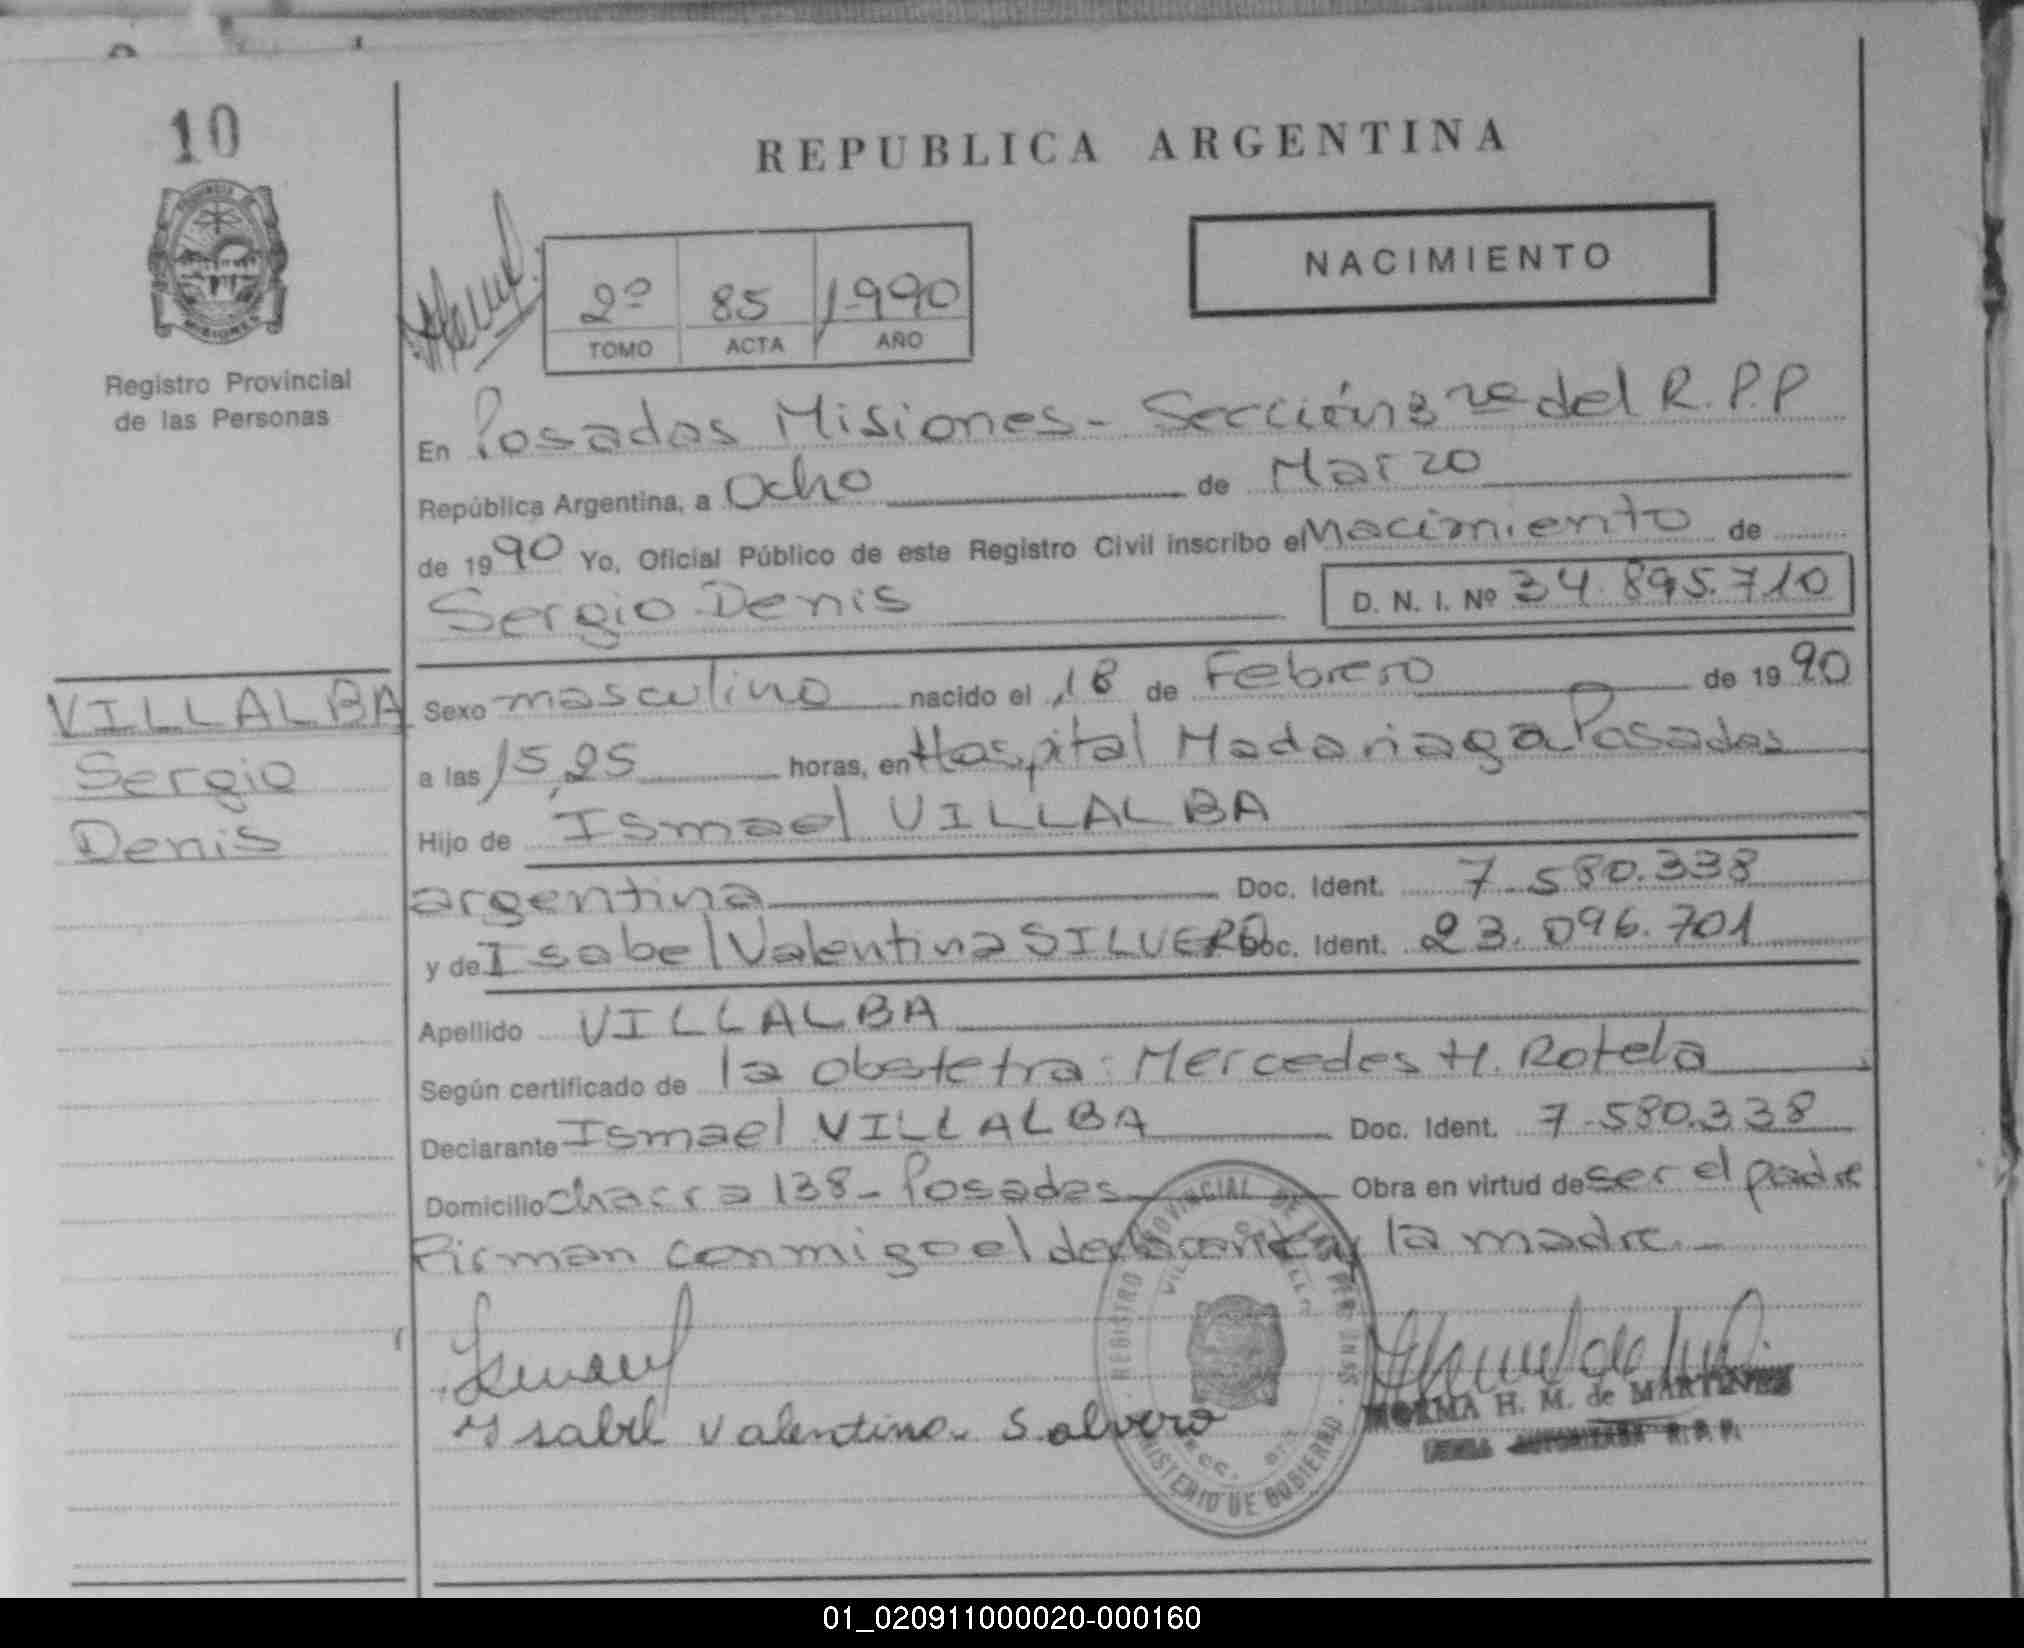 10
Registro Provincial
de las Personas
REPUBLICA ARGENTINA
NACIMIENTO
2º 85 1990
TOMO ACTA AÑO
En Posadas Misiones - Sección 3ra del R.P.P
República Argentina, a Ocho de Marzo
de 1990 Yo, Oficial Público de este Registro Civil inscribo el Nacimiento de
Sergio Denis D. N. I. Nº 34.895.710
VILLALBA
Sergio
Denis
Sexo masculino nacido el 18 de Febrero de 1990
a las 15,25 horas, en Hospital Madariaga Posadas
Hijo de Ismael VILLALBA
argentina Doc. Ident. 7.580.338
y de Isabel Valentina SILVERO Doc. Ident. 23.096.701
Apellido VILLALBA
Según certificado de la obstetra: Mercedes H. Rotela
Declarante Ismael VILLALBA Doc. Ident. 7.580.338
Domicilio chacra 138 - Posadas Obra en virtud de ser el padre
Firman conmigo el declarante y la madre.-
Ysabel Valentina Salvero
REGISTRO PROVINCIAL DE LAS PERSONAS
MINISTERIO DE GOBIERNO
NORMA H. M. de MARTINEZ
AUTORIZADA R.P.P.
01_020911000020-000160